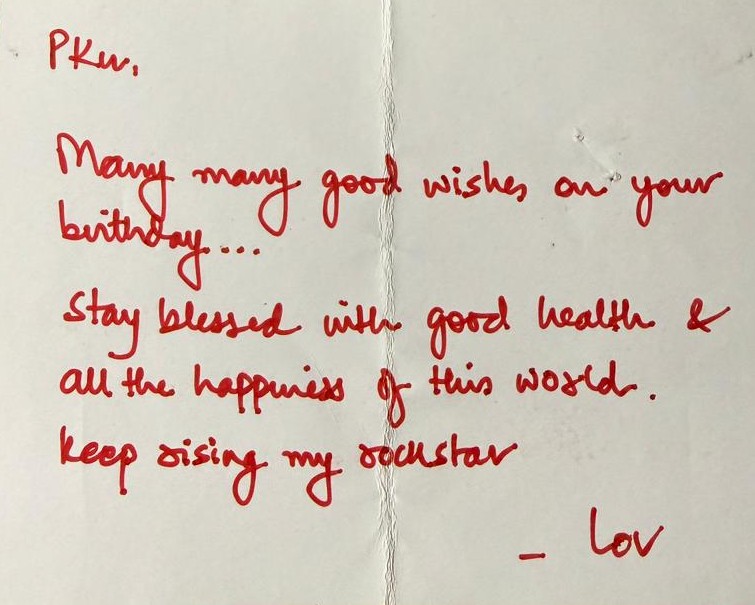 PKu,
Many many good wishes on your
birthday....
Stay blessed with good health &
all the happiness of this world.
Keep rising my rockstar
- Lov